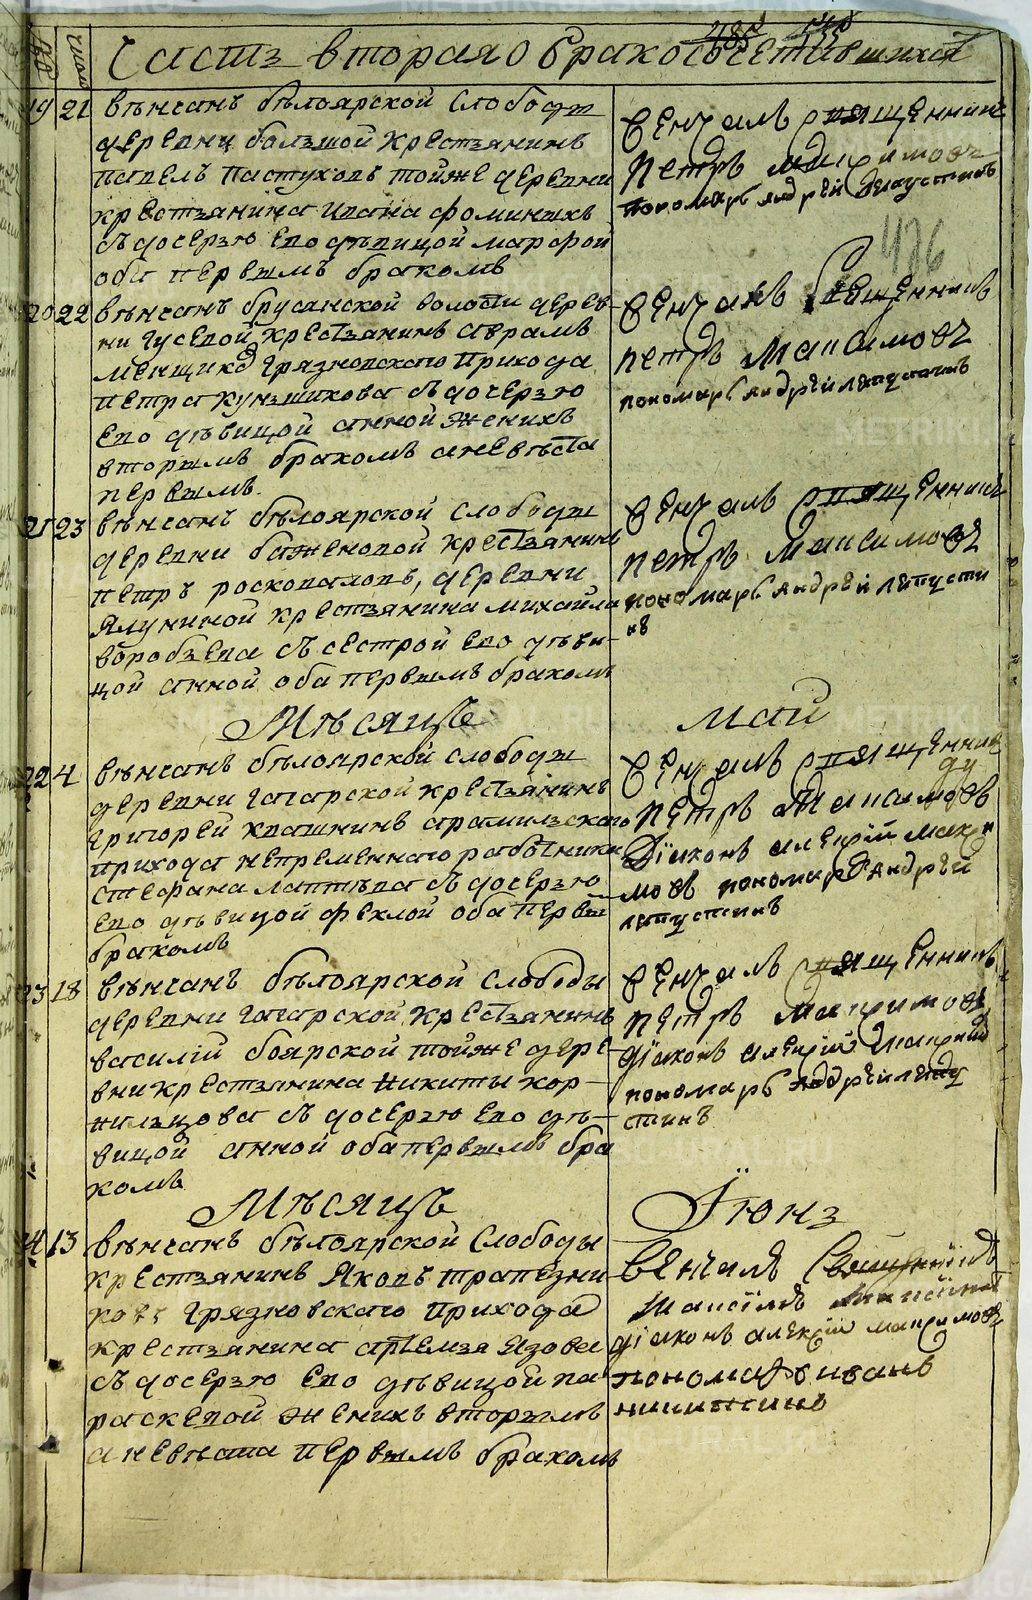 Часть вторая о бракосочетавшихся
19 21 вѣнчанъ бѣлоярской слободы
деревни большой крестьянинъ
павелъ пастуховъ тойже деревни
крестьянина ивана фоминыхъ
съ дочерью ево дѣвицой марфой
оба первымъ бракомъ
Венчалъ священникъ
Петръ Максимовъ
пономарь Андрѣй
436
20 22 вѣнчанъ брусянской волости дерев-
ни гусевой крестьянинъ аврамъ
менщиков грязновскаго прихода
петра кунщикова съ дочерью
ево дѣвицой анной женихъ
вторымъ бракомъ а невѣста
первымъ.
Венчалъ священникъ
петръ Максимовъ
пономарь андрѣй лепустинъ
21 23 вѣнчанъ бѣлоярской слободы
деревни баженовой крестьянинъ
петръ росковаловъ, деревни
Ялуниной крестьянина михайла
воробьева съ сестрой ево дѣви-
цой анной оба первымъ бракомъ
Венчалъ священникъ
петръ Максимовъ
пономарь Андрѣй лепусти
нъ
Мѣсяцъ Маій
22 4 вѣнчанъ бѣлоярской слободы
деревни гагарской крестьянинъ
григорей квашнинъ арамильскаго
прихода непременнаго работника
стефана лаптѣва съ дочерью
ево дѣвицой феклой оба первым
бракомъ
Венчалъ священник
петръ Максимовъ
Діаконъ алексій макси
мовъ пономарь Андрѣй
лепустинъ
23 18 вѣнчанъ бѣлоярской слободы
деревни гагарской крестьянинъ
василій боярской тойже дере-
вни крестьянина никиты кор-
нильцова съ дочерью ево дѣ-
вицой анной оба первымъ бра
комъ
Венчалъ священникъ
петръ Максимовъ
діаконъ алексій
пономарь андрѣй лепу
стинъ
Мѣсяцъ Їюнь
24 13 вѣнчанъ бѣлоярской слободы
крестьянинъ Яковъ трапезни
ковъ грязновскаго прихода
крестьянина артемья Язовс
съ дочерью ево дѣвицой па
раскевой женихъ вторымъ
а невѣста первымъ бракомъ
венчалъ Священникъ
Максимъ
діаконъ алексій максимовъ
пономарь иванъ
никитинъ